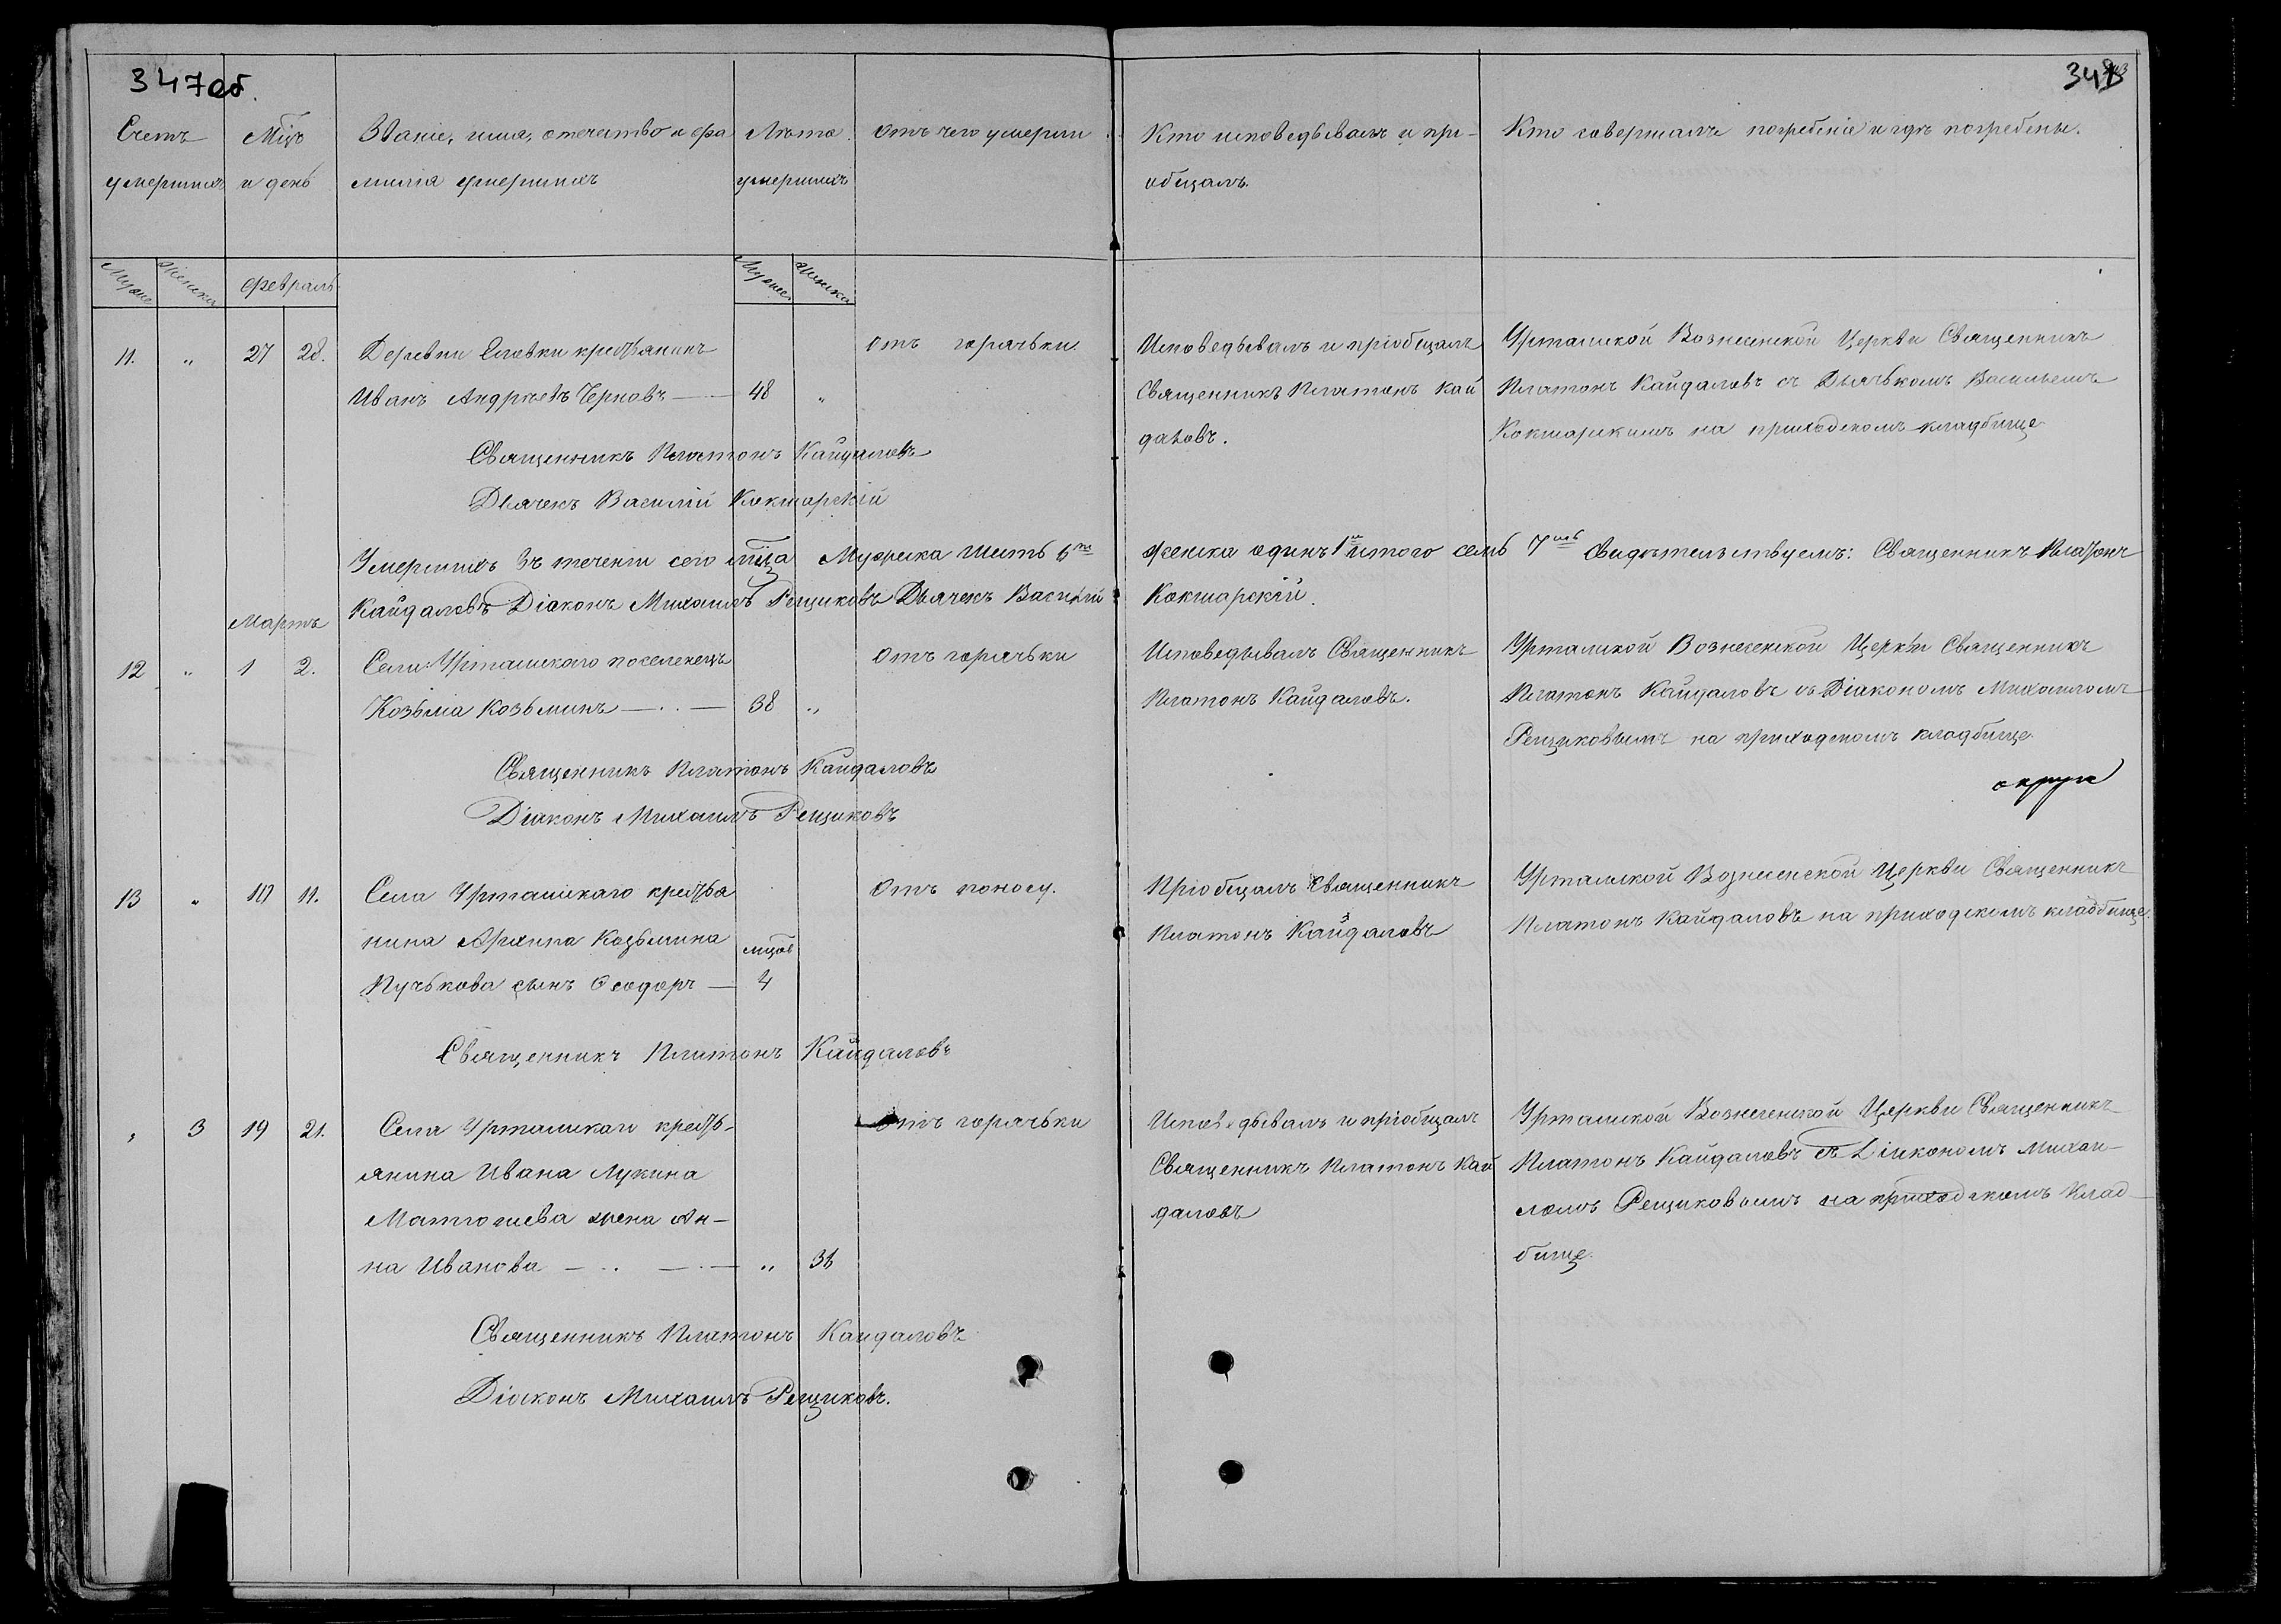 347об.
348
Счетъ умершихъ
Мцъ и день
Званіе, имя, отечество и фа
милія умершихъ
Лѣта умершихъ
Отъ чего умерли
Кто исповедывалъ и прі-
общалъ.
Кто совершалъ погребеніе и гдѣ погребены.
Мужеска
Женска
Февраль
Мужеска
Женска
11. " 27 28. Деревни Еловки крестьянинъ
Иванъ Андреевъ Черновъ — 48 "
отъ горячьки.
Исповедывалъ и пріобщалъ
Священникъ Платонъ Кай
даловъ.
Урталиской Вознесенской Церкви Священникъ
Платонъ Кайдаловъ съ Дьячькомъ Васильемъ
Кокшарскимъ на приходскомъ кладбище
Священникъ Платонъ Кайдаловъ
Дьячекъ Василій Кокшарскій
Умершихъ въ теченіи сего мца Мужеска шесть 6ть женска одинъ 1нъ итого семь 7мь Свидѣтельствуемъ: Священникъ Платонъ
Кайдаловъ Діаконъ Михаилъ Рещиковъ Дьячекъ Василій Кокшарскій.
Мартъ
12 " 1 2. Села Урталискаго поселенецъ
Козьма Козьминъ — 38 "
Отъ горячьки
Исповедывалъ Священникъ
Платонъ Кайдаловъ.
Урталиской Вознесенской Церкви Священникъ
Платонъ Кайдаловъ съ Діакономъ Михаиломъ
Рещиковымъ на приходскомъ кладбище
округа
Священникъ Платонъ Кайдаловъ
Діаконъ Михаилъ Рещиковъ
13 " 10 11. Села Урталискаго крестьа
нина Архипа Козьмина
Пучькова сынъ Ѳеодоръ — мцов 4
Отъ поносу.
Пріобщалъ Священникъ
Платонъ Кайдаловъ
Урталиской Вознесенской Церкви Священникъ
Платонъ Кайдаловъ на приходскомъ кладбище.
Священникъ Платонъ Кайдаловъ
" 3 19 21. Села Урталискаго кресть-
янина Ивана Лукина
Матюшева жена Ан-
на Иванова — " 36
Отъ горячьки
Исповедывалъ и пріобщалъ
Священникъ Платонъ Кай
даловъ
Урталиской Вознесенской Церкви Священникъ
Платонъ Кайдаловъ съ Діакономъ Михаи-
ломъ Рещиковымъ на приходскомъ клад-
бище.
Священникъ Платонъ Кайдаловъ
Діаконъ Михаилъ Рещиковъ.